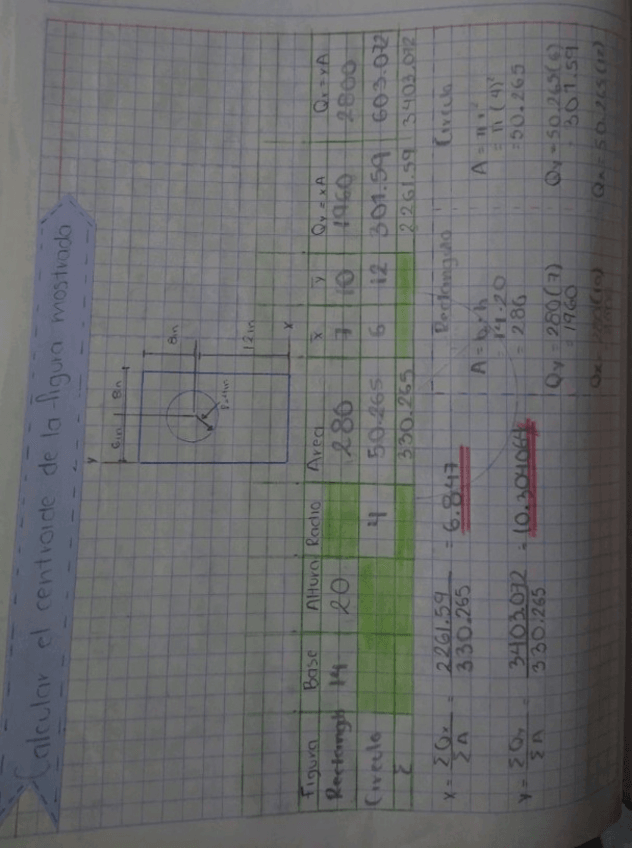 Calcular el centroide de la figura mostrada
y
6in 8in
8in
12in
x
Figura Base Altura Radio Area x̄ ȳ Qy=xA Qx=yA
Rectangulo 14 20 280 7 10 1960 2800
Circulo 4 50.265 6 12 301.59 603.072
Σ 330.265 2261.59 3403.072
x = ΣQx / ΣA = 2261.59 / 330.265 = 6.847
y = ΣQy / ΣA = 3403.072 / 330.265 = 10.304064
Rectangulo
A = b×h
= 14.20
= 286
Qy = 280(7)
= 1960
Circulo
A = πr²
= π(4)²
= 50.265
Qy = 50.265(6)
= 301.59
Qx = 50.265(12)